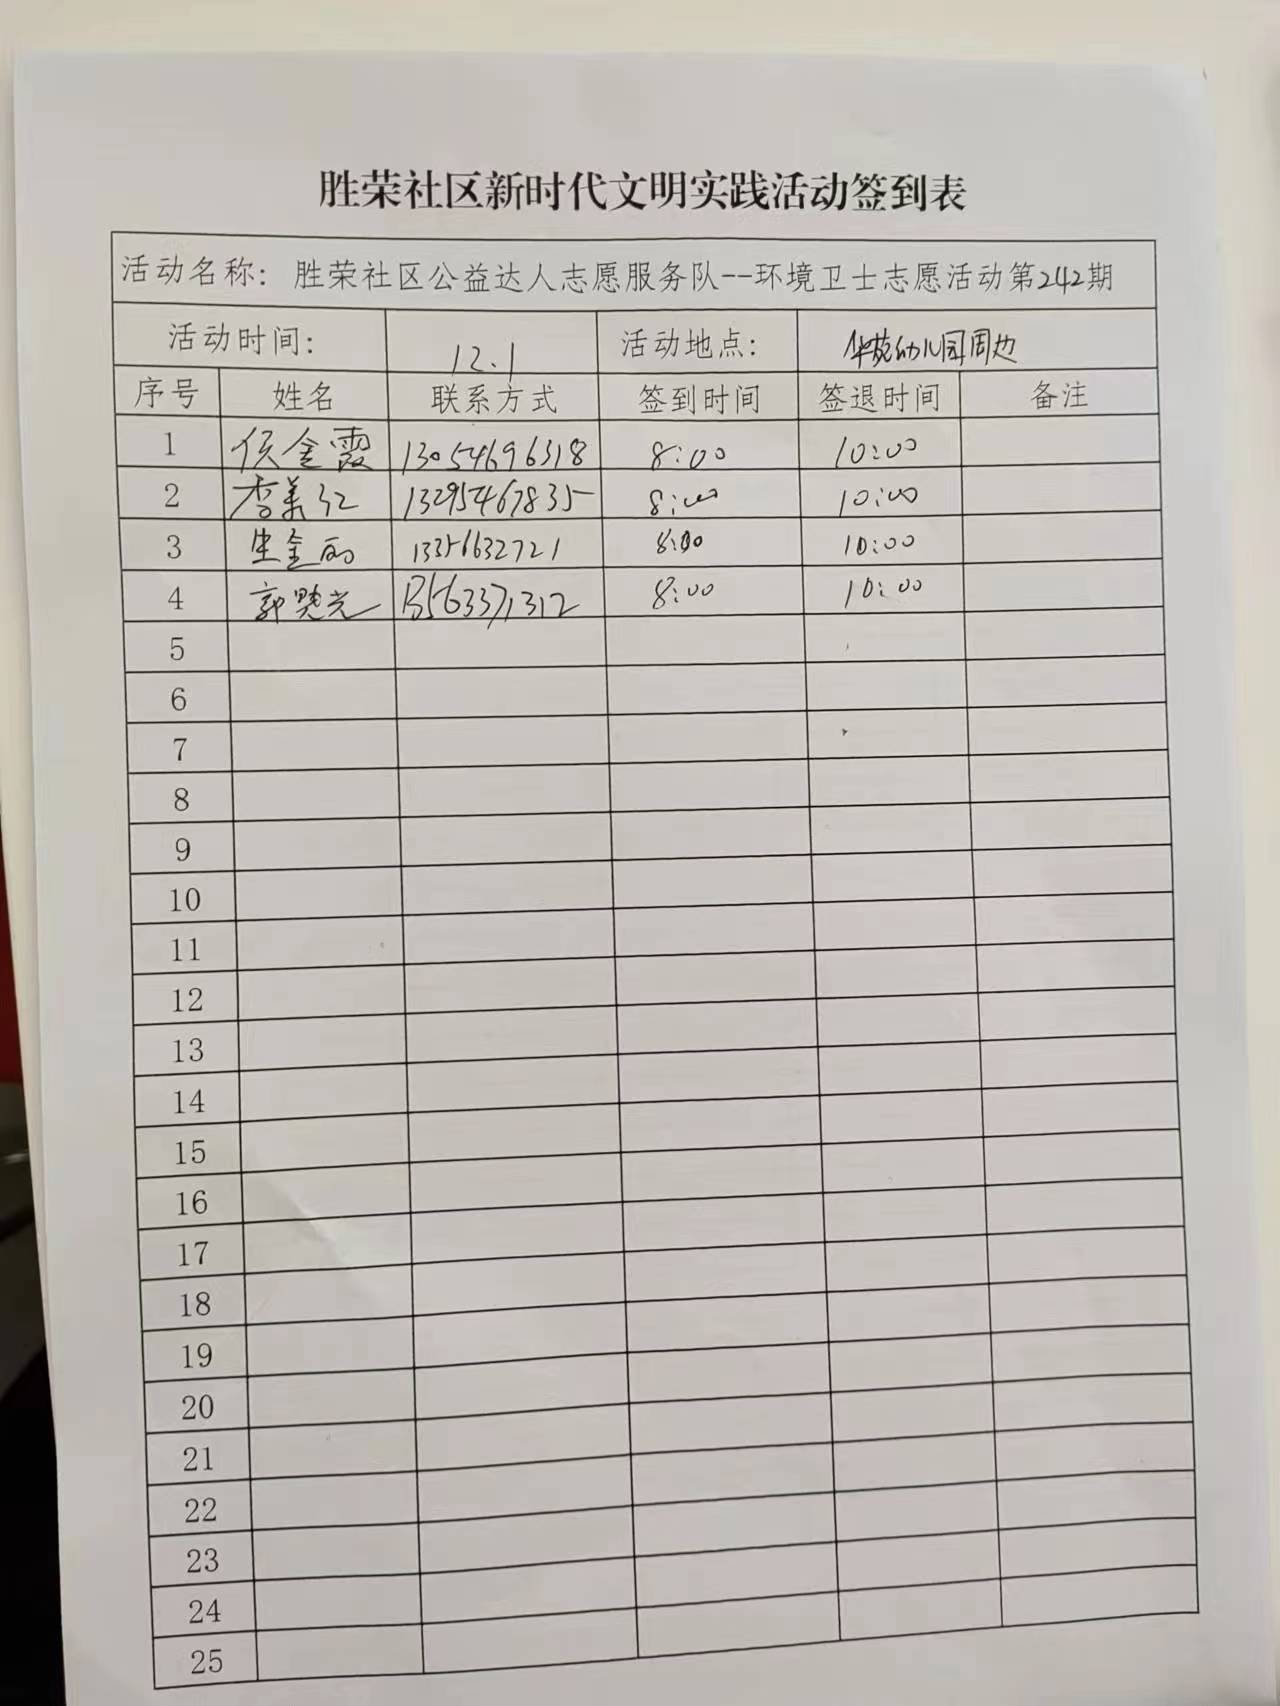 胜荣社区新时代文明实践活动签到表
活动名称：胜荣社区公益达人志愿服务队--环境卫士志愿活动第242期
活动时间： 12.1 活动地点： 华苑幼儿园周边
序号 姓名 联系方式 签到时间 签退时间 备注
1 侯金霞 13054696318 8:00 10:00
2 李美红 13295467835 8:00 10:00
3 生金丽 13356632721 8:00 10:00
4 郭 13563371312 8:00 10:00
5
6
7
8
9
10
11
12
13
14
15
16
17
18
19
20
21
22
23
24
25